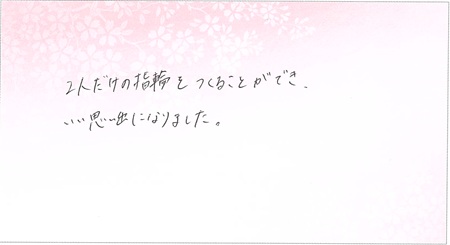 2人だけの指輪をつくることができ、
いい思い出になりました。